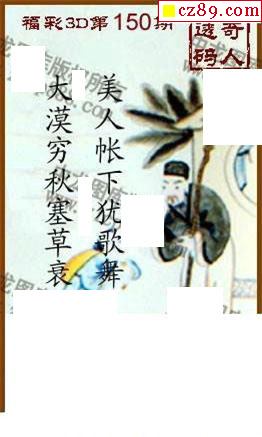 cz89.com
福彩3D第150期
奇人
透码
美人帐下犹歌舞
大漠穷秋塞草衰